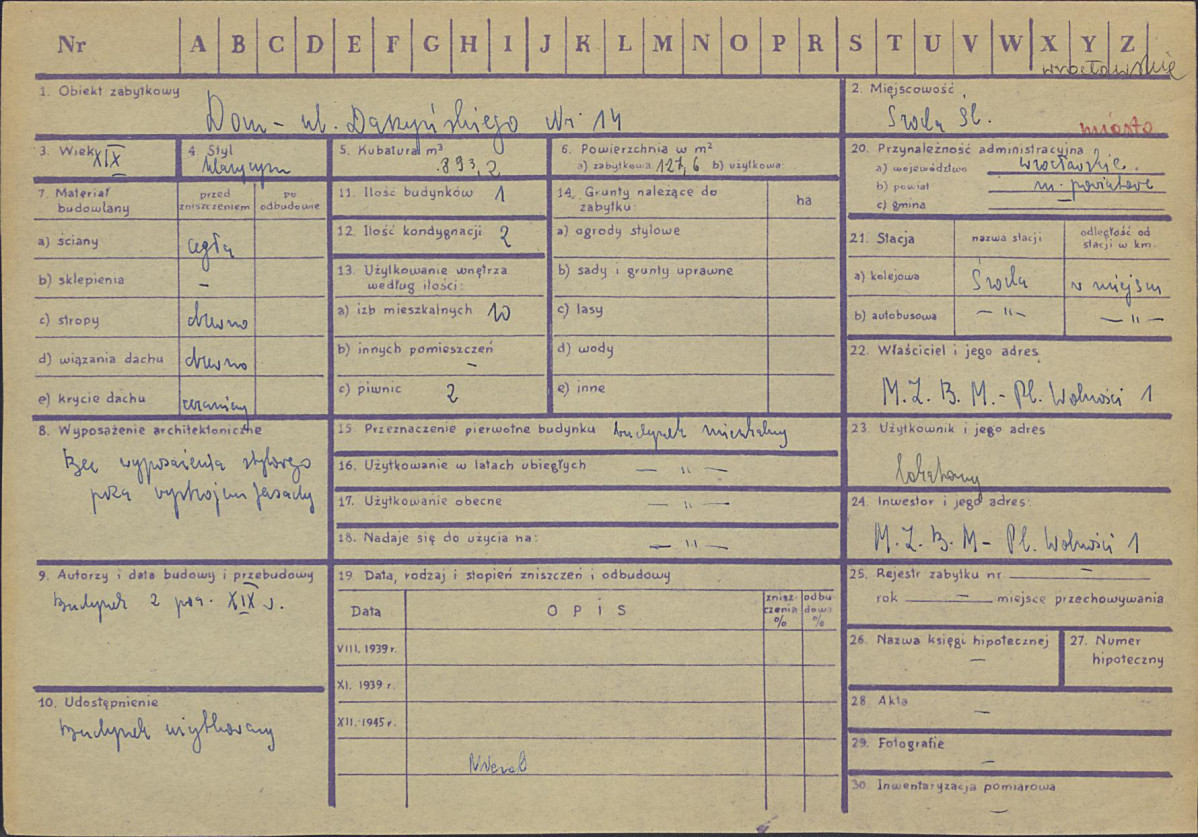 Nr A B C D E F G H I J K L M N O P R S T U V W X Y Z
wrocławskie
1. Obiekt zabytkowy
Dom - ul. Daszyńskiego Nr 14
2. Miejscowość
Środa Śl.
miasto
3. Wiek XIX
4. Styl
klasycyzm
5. Kubatura m³
893,2
6. Powierzchnia w m²
a) zabytkowa: 127,6 b) użytkowa:
20. Przynależność administracyjna
a) województwo wrocławskie
b) powiat m. powiatowe
c) gmina
7. Materiał budowlany
przed zniszczeniem
po odbudowie
a) ściany cegła
b) sklepienia –
c) stropy drewno
d) wiązania dachu drewno
e) krycie dachu
11. Ilość budynków 1
12. Ilość kondygnacji 2
13. Użytkowanie wnętrza
według ilości:
a) izb mieszkalnych 10
b) innych pomieszczeń –
c) piwnic 2
14. Grunty należące do
zabytku:
ha
a) ogrody stylowe
b) sady i grunty uprawne
c) lasy
d) wody
e) inne
21. Stacja
nazwa stacji
odległość od
stacji w km.
a) kolejowa Środa w miejscu
b) autobusowa – " – – " –
22. Właściciel i jego adres
M.Z.B.M. - Pl. Wolności 1
8. Wyposażenie architektoniczne
Bez wyposażenia stylowego
poza wystrojem fasady
15. Przeznaczenie pierwotne budynku budynek mieszkalny
16. Użytkowanie w latach ubiegłych – " –
17. Użytkowanie obecne – " –
18. Nadaje się do użycia na: – " –
23. Użytkownik i jego adres
lokatorzy
24. Inwestor i jego adres:
M.Z.B.M - Pl. Wolności 1
9. Autorzy i data budowy i przebudowy
Budynek 2 poł. XIX w.
19. Data, rodzaj i stopień zniszczeń i odbudowy
Data
OPIS
znisz-
czenia
%
odbu
dowa
%
VIII. 1939 r.
XI. 1939 r.
XII. 1945 r.
25. Rejestr zabytku nr –
rok – miejsce przechowywania
26. Nazwa księgi hipotecznej
–
27. Numer
hipoteczny
10. Udostępnienie
Budynek użytkowany
28. Akta
–
29. Fotografie
–
30. Inwentaryzacja pomiarowa
–